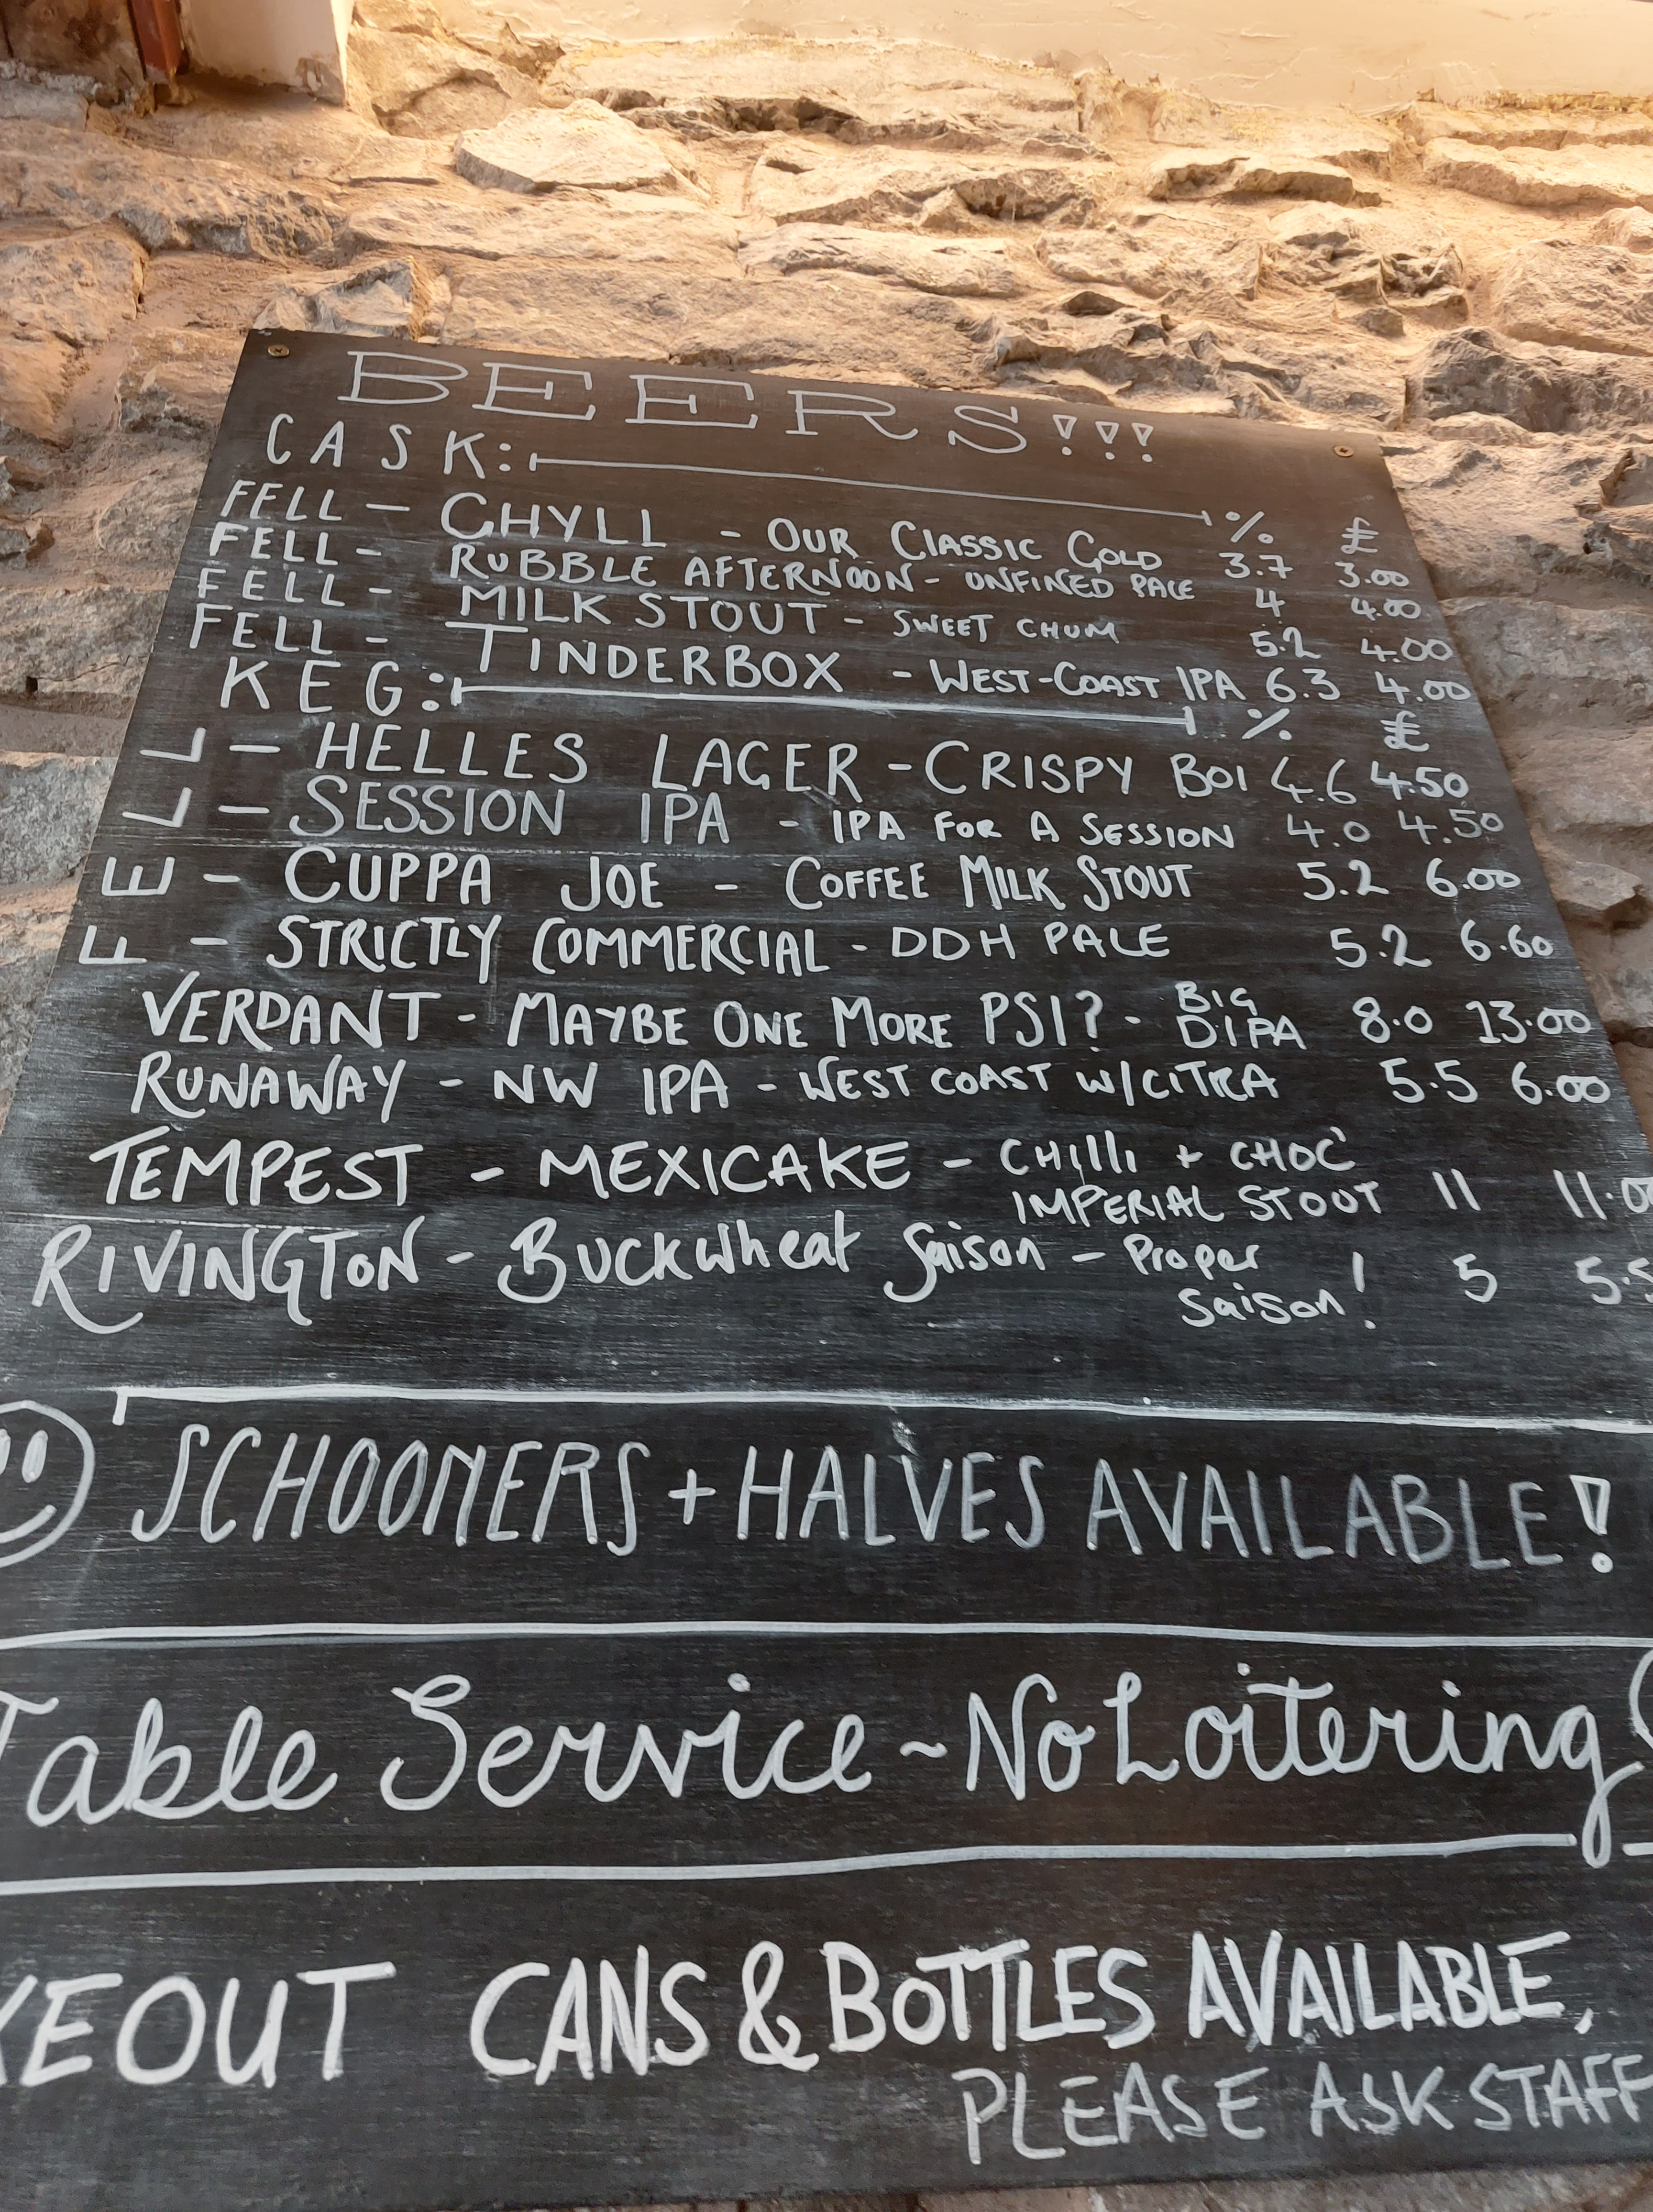 BEERS!!!
CASK: % £
FELL - CHYLL - OUR CLASSIC GOLD 3.7 3.00
FELL - RUBBLE AFTERNOON - UNFINED PALE 4 4.00
FELL - MILK STOUT - SWEET CHUM 5.2 4.00
FELL - TINDERBOX - WEST-COAST IPA 6.3 4.00
KEG: % £
FELL
- HELLES LAGER - CRISPY BOI 4.6 4.50
- SESSION IPA - IPA FOR A SESSION 4.0 4.50
- CUPPA JOE - COFFEE MILK STOUT 5.2 6.00
- STRICTLY COMMERCIAL - DDH PALE 5.2 6.60
VERDANT - MAYBE ONE MORE PSI? - BIG DIPA 8.0 13.00
RUNAWAY - NW IPA - WEST COAST W/CITRA 5.5 6.00
TEMPEST - MEXICAKE - CHILLI + CHOC'
IMPERIAL STOUT 11 11.0
RIVINGTON - Buckwheat Saison - Proper
Saison! 5 5.5
SCHOONERS + HALVES AVAILABLE!
Table Service ~ No Loitering
KEOUT CANS & BOTTLES AVAILABLE,
PLEASE ASK STAFF